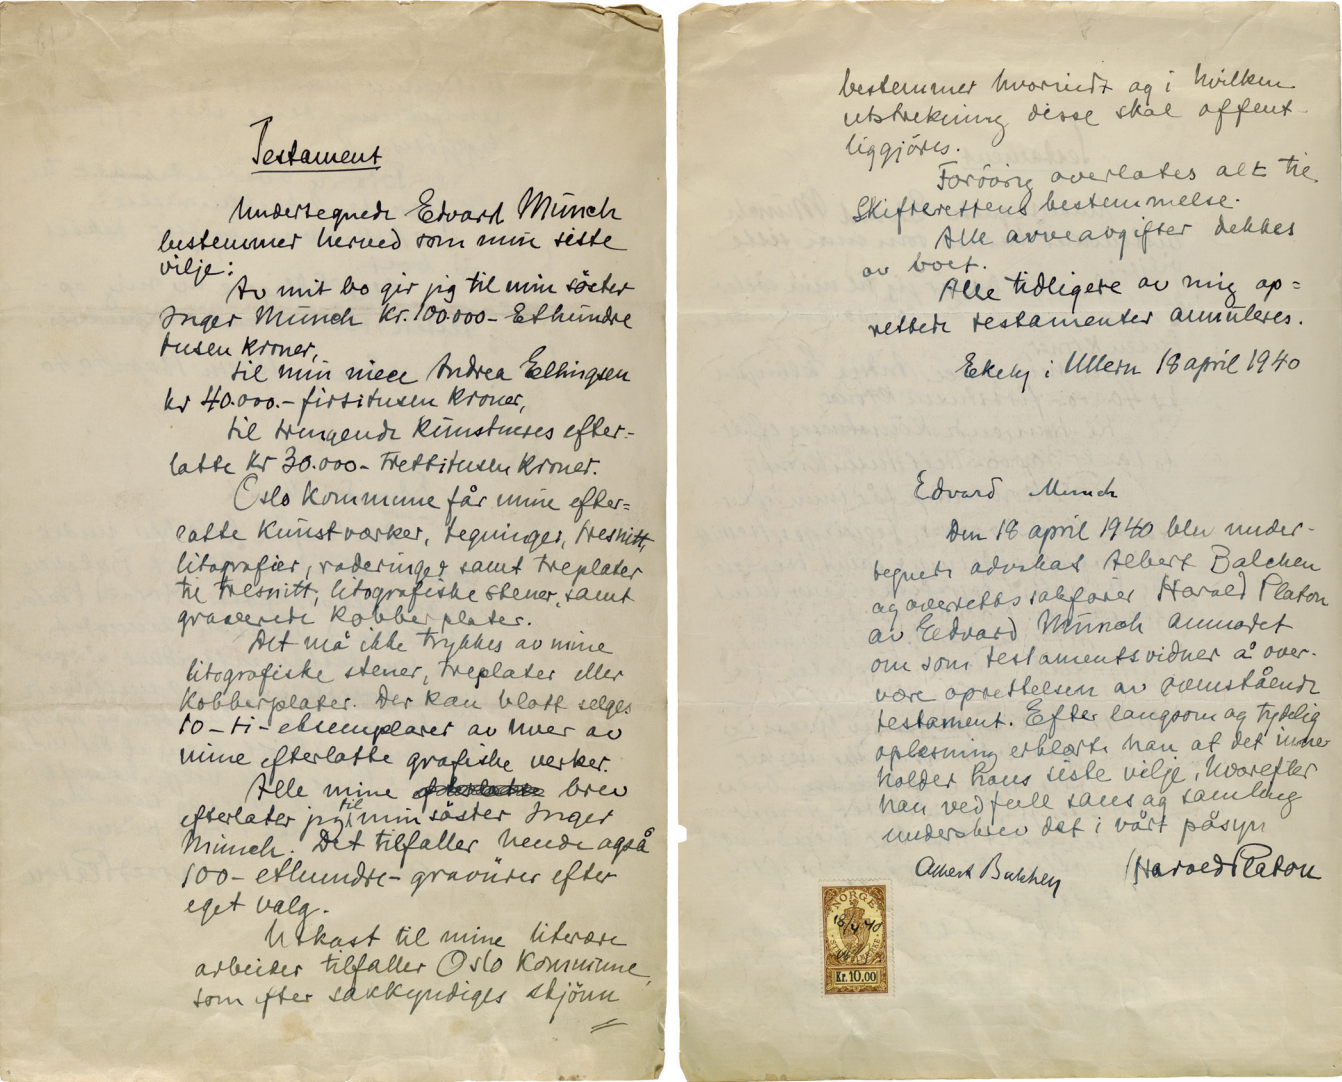 Testament
Undertegnede Edvard Munch
bestemmer herved som min siste
vilje:
Av mit bo gir jeg til min søster
Inger Munch kr. 100.000 – Ethundre
tusen kroner,
til min niece Andrea Ellingsen
kr 40.000.– firtitusen kroner,
til trengende kunstneres efter-
latte kr 30.000 – trettitusen kroner.
Oslo kommune får mine efter=
latte kunstverker, tegninger, tresnitt,
litografier, raderinger samt treplater
til tresnitt, litografiske stener, samt
graverede kobberplater.
Det må ikke trykkes av mine
litografiske stener, treplater eller
kobberplater. Der kan blott selges
10 – ti – eksemplarer av hver av
mine efterlatte grafiske verker.
Alle mine efterlatte brev
efterlater jeg til min søster Inger
Munch. Det tilfaller hende også
100 – ethundre – gravürer efter
eget valg.
Utkast til mine literære
arbeider tilfaller Oslo kommune,
som efter sakkyndiges skjönn
bestemmer hvorvidt og i hvilken
utstrekning disse skal offent-
liggjöres.
Forövrig overlates alt til
Skifterettens bestemmelse.
Alle arveavgifter dekkes
av boet.
Alle tidligere av mig op=
rettede testamenter annuleres.
Ekely i Ullern 18 april 1940
Edvard Munch
Den 18 april 1940 blev under-
tegnede advokat Albert Balchen
og overrettssakfører Harald Platon
av Edvard Munch anmodet
om som testamentsvidner å over-
være oprettelsen av ovenstående
testament. Efter langsom og tydelig
oplesning erklærte han at det inne-
holder hans siste vilje, hvorefter
han ved full sans og samling
underskrev det i vårt påsyn
Albert Balchen Harald Platon
NORGE
18/4 40
Kr. 10,00